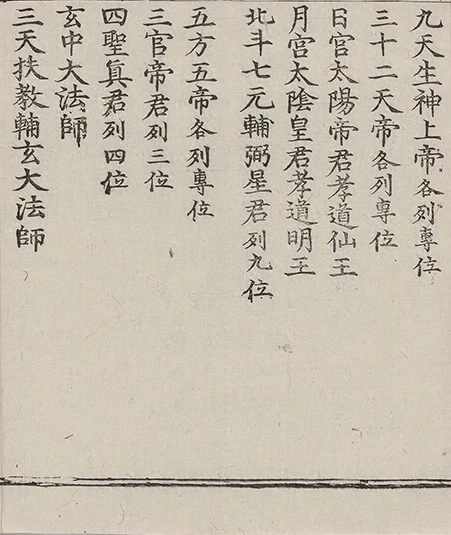 九天生神上帝各列專位
三十二天帝各列專位
日宮太陽帝君孝道仙王
月宮太陰皇君孝道明王
北斗七元輔弼星君列九位
五方五帝各列專位
三官帝君列三位
四聖眞君列四位
玄中大法師
三天扶教輔玄大法師